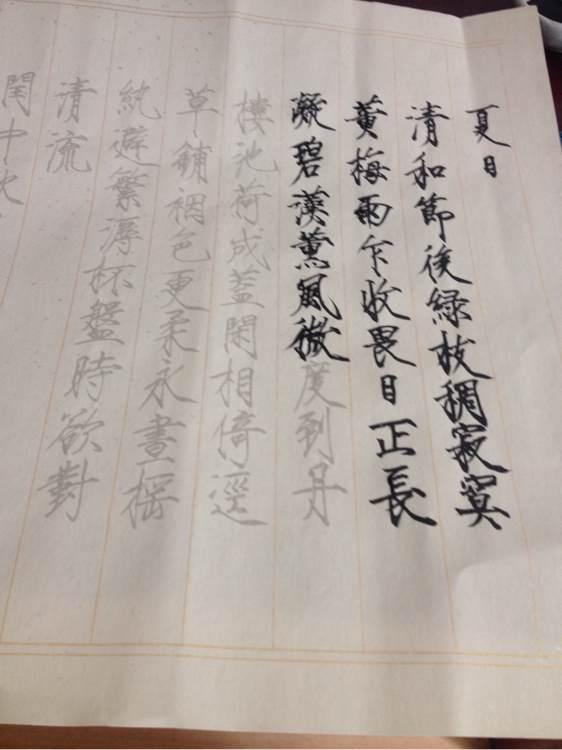 夏日
清和節後綠枝稠寂寞
黃梅雨乍收畏日正長
凝碧漢薰風微度到丹
樓池荷成蓋閑相倚逕
草鋪裀色更柔永晝搖
紈避繁溽杯盤時欲對
清流
閏中